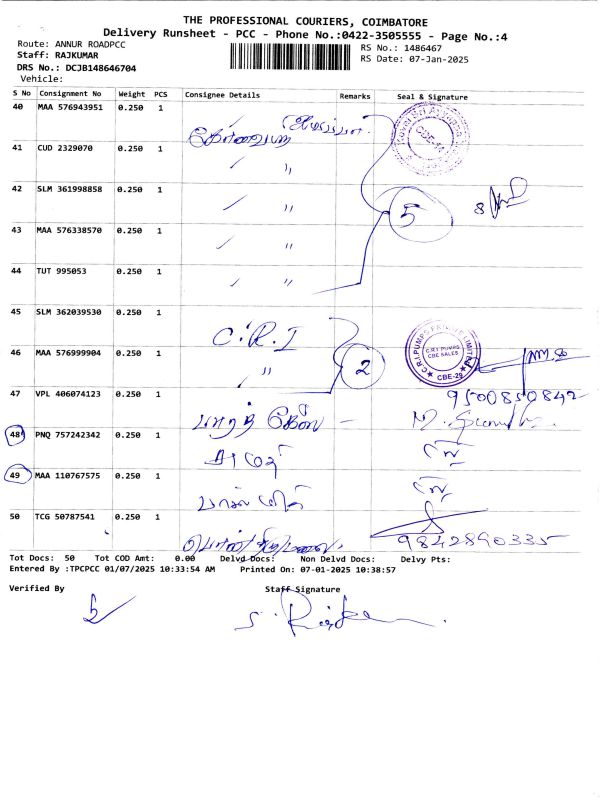 THE PROFESSIONAL COURIERS, COIMBATORE
Delivery Runsheet - PCC - Phone No.:0422-3505555 - Page No.:4
Route: ANNUR ROADPCC
Staff: RAJKUMAR
DRS No.: DCJB148646704
Vehicle:
RS No.: 1486467
RS Date: 07-Jan-2025
S No Consignment No Weight PCS Consignee Details Remarks Seal & Signature
40 MAA 576943951 0.250 1
41 CUD 2329070 0.250 1 "
42 SLM 361998858 0.250 1 " 5 8
43 MAA 576338570 0.250 1 "
44 TUT 995053 0.250 1 "
45 SLM 362039530 0.250 1 C.R.I
46 MAA 576999904 0.250 1 " 2
C.R.I PUMPS PRIVATE LIMITED
C.R.I PUMPS
CBE SALES
CBE-29
47 VPL 406074123 0.250 1 9500850842
48 PNQ 757242342 0.250 1
49 MAA 110767575 0.250 1
50 TCG 50787541 0.250 1 9842890335
Tot Docs: 50 Tot COD Amt: 0.00 Delvd Docs: Non Delvd Docs: Delvy Pts:
Entered By :TPCPCC 01/07/2025 10:33:54 AM Printed On: 07-01-2025 10:38:57
Verified By Staff Signature